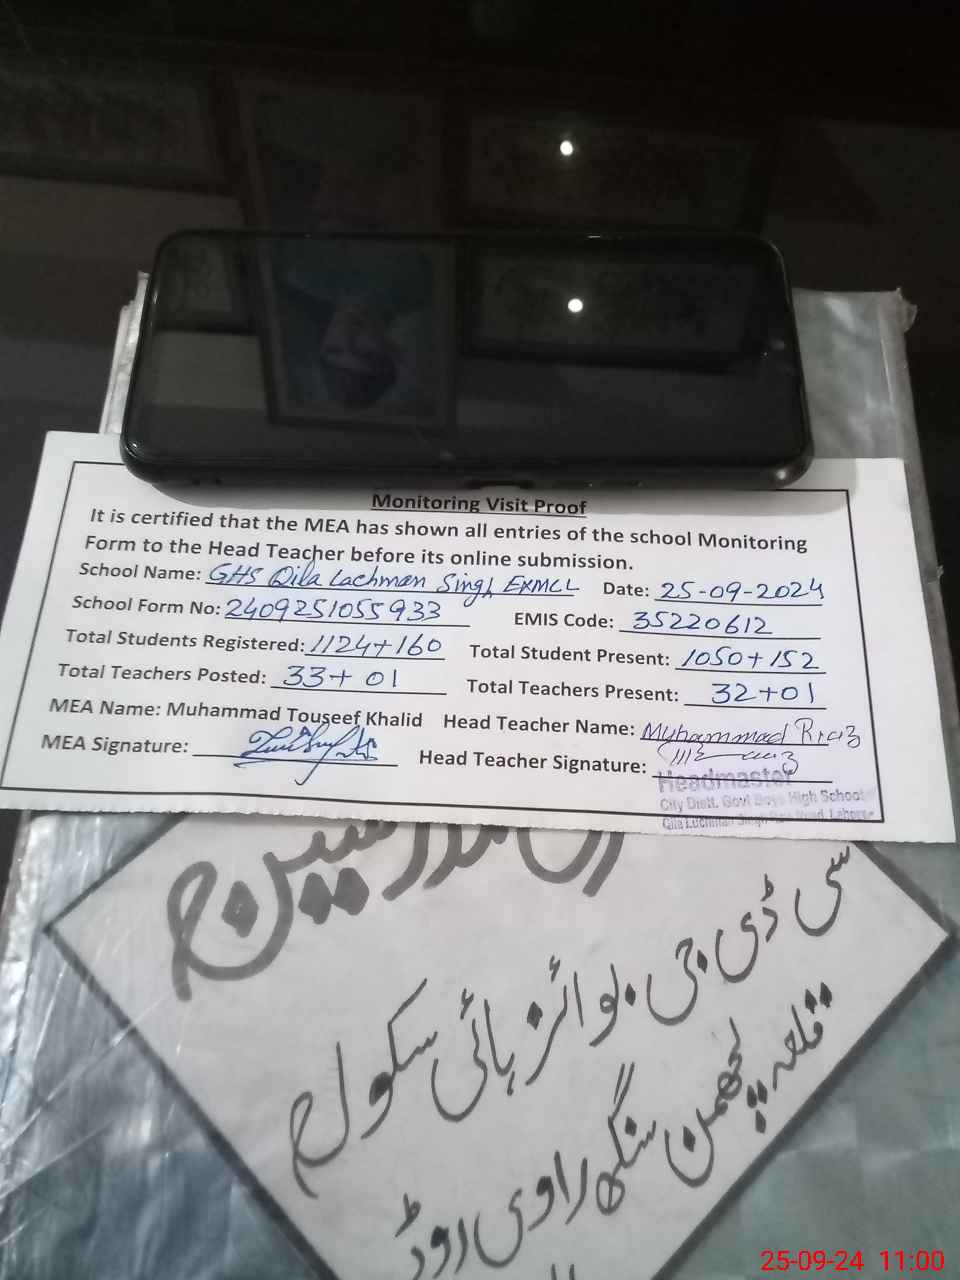 Monitoring Visit Proof
It is certified that the MEA has shown all entries of the school Monitoring
Form to the Head Teacher before its online submission.
School Name: GHS Qila Lachman Singh EXMCL Date: 25-09-2024
School Form No: 2409251055933 EMIS Code: 35220612
Total Students Registered: 1124+160 Total Student Present: 1050+152
Total Teachers Posted: 33+01 Total Teachers Present: 32+01
MEA Name: Muhammad Touseef Khalid Head Teacher Name: Muhammad Riaz
MEA Signature: Head Teacher Signature:
Headmaster
City Distt. Govt Boys High School
Qila Luchman Singh Road, Lahore
سی ڈی جی بوائز ہائی سکول
قلعہ لچھمن سنگھ راوی روڈ
25-09-24 11:00